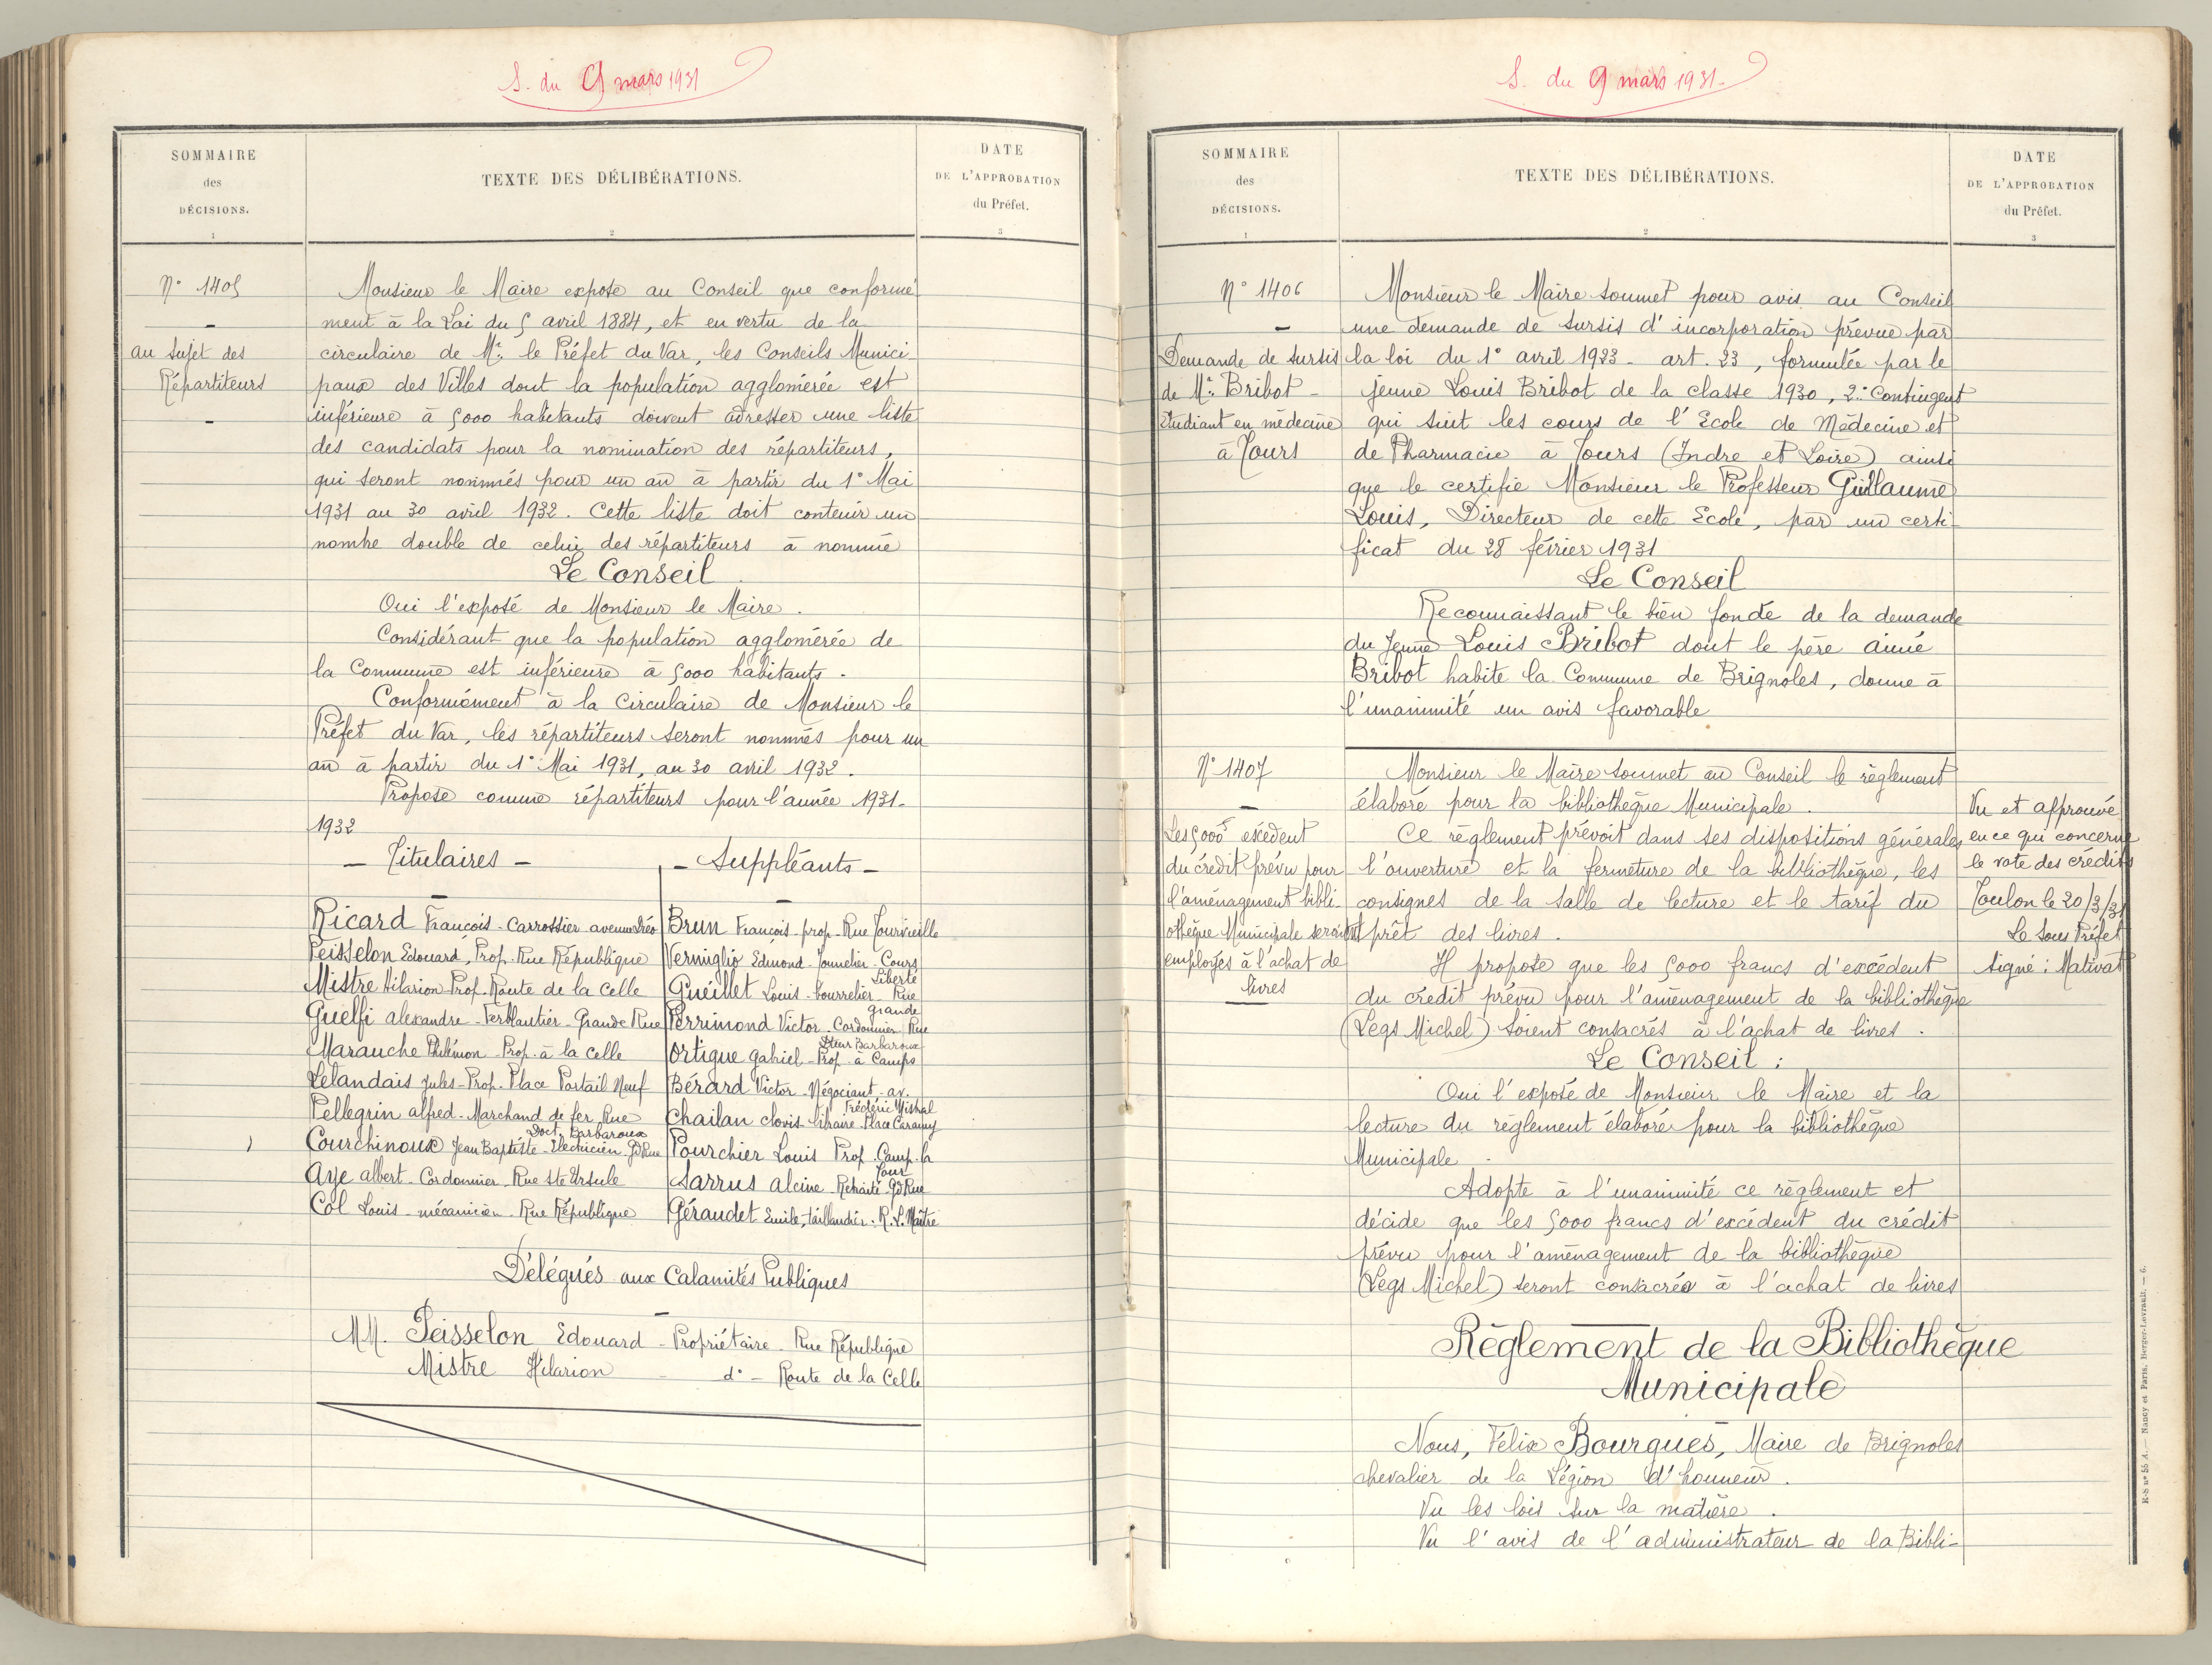 S. du 9 mars 1931
SOMMAIRE
des
DÉCISIONS.
1
TEXTE DES DÉLIBÉRATIONS.
2
DATE
DE L'APPROBATION
du Préfet.
3
N° 1405
au sujet des
Répartiteurs
Monsieur le Maire expose au Conseil que conformé
ment à la Loi du 5 avril 1884, et en vertu de la
circulaire de Mr. le Préfet du Var, les Conseils Munici
paux des Villes dont la population agglomérée est
inférieure à 5000 habitants doivent adresser une liste
des candidats pour la nomination des répartiteurs,
qui seront nommés pour un an à partir du 1° Mai
1931 au 30 avril 1932. Cette liste doit contenir un
nombre double de celui des répartiteurs à nommé
Le Conseil
Oui l'exposé de Monsieur le Maire.
Considérant que la population agglomérée de
la Commune est inférieure à 5000 habitants.
Conformément à la Circulaire de Monsieur le
Préfet du Var, les répartiteurs seront nommés pour un
an à partir du 1° Mai 1931, au 30 avril 1932.
Propose comme répartiteurs pour l'année 1931-
1932
- Titulaires -
Ricard François - Carrossier avenue Dréo
Peisselon Edouard, Prof. Rue République
Mistre Hilarion Prof. Route de la Celle
Guelfi alexandre - Ferblantier - Grande Rue
Marauche Philémon Prop. à la Celle
Lelandais Jules - Prop. Place Portail Neuf
Pellegrin alfred - Marchand de fer Rue
Doct. Barbaroux
Courchinoux Jean Baptiste - Electricien - Gd Rue
Aye albert - Cordonnier - Rue Ste Ursule
Col Louis - mécanicien - Rue République
- Suppléants -
Brun François - prop. Rue Tourvieille
Vermiglio Edmond - Tonnelier - Cours
Liberté
Guéillet Louis - bourrelier - Rue
grande
Perrimond Victor - Cordonnier Rue
Dteur Barbaroux
Ortigue gabriel - Prop. à Camps
Bérard Victor - Négociant - av.
Frédéric Mistral
Chailan clovis libraire Place Caramy
Pourchier Louis Prop. Camp-la
Tour
Sarrus alcine - Retraité Gd Rue
Géraudet Emile, taillandier. R. L. Maître
Délégués aux Calamités Publiques
MM. Peisselon Edouard - Propriétaire - Rue République
Mistre Hilarion - d° - Route de la Celle
S. du 9 mars 1931 -
SOMMAIRE
des
DÉCISIONS.
1
TEXTE DES DÉLIBÉRATIONS.
2
DATE
DE L'APPROBATION
du Préfet.
3
N° 1406
Demande de sursis
de Mr. Bribot -
étudiant en médecine
à Tours
Monsieur le Maire soumet pour avis au Conseil
une demande de sursis d'incorporation prévue par
la loi du 1° avril 1923 - art. 23, formulée par le
jeune Louis Bribot de la classe 1930, 2° Contingent
qui suit les cours de l'Ecole de Médecine et
de Pharmacie à Tours (Indre et Loire) ainsi
que le certifie Monsieur le Professeur Guillaume
Louis, Directeur de cette Ecole, par un certi-
ficat du 28 février 1931
Le Conseil
Reconnaissant le bien fondé de la demande
du Jeune Louis Bribot dont le père aimé
Bribot habite la Commune de Brignoles, donne à
l'unanimité un avis favorable
N° 1407
Les 5000 f excédent
du crédit prévu pour
l'aménagement bibli-
othèque Municipale seraient
employés à l'achat de
livres
Monsieur le Maire soumet au Conseil le règlement
élaboré pour la bibliothèque Municipale.
Ce règlement prévoit dans ses dispositions générales
l'ouverture et la fermeture de la bibliothèque, les
consignes de la salle de lecture et le tarif du
prêt des livres.
Il propose que les 5000 francs d'excédent
du crédit prévu pour l'aménagement de la bibliothèque
(Legs Michel) soient consacrés à l'achat de livres.
Le Conseil :
Oui l'exposé de Monsieur le Maire et la
lecture du règlement élaboré pour la bibliothèque
Municipale.
Adopte à l'unanimité ce règlement et
décide que les 5000 francs d'excédent du crédit
prévu pour l'aménagement de la bibliothèque
(Legs Michel) seront consacrés à l'achat de livres
Vu et approuvé
en ce qui concerne
le vote des crédits
Toulon le 20/3/31
Le Sous Préfet
Signé : Mativat
Règlement de la Bibliothèque
Municipale
Nous, Félix Bourgues, Maire de Brignoles
chevalier de la Légion d'honneur.
Vu les lois sur la matière.
Vu l'avis de l'administrateur de la Bibli-
E-S n° 55 A. — Nancy et Paris, Berger-Levrault. — 6.